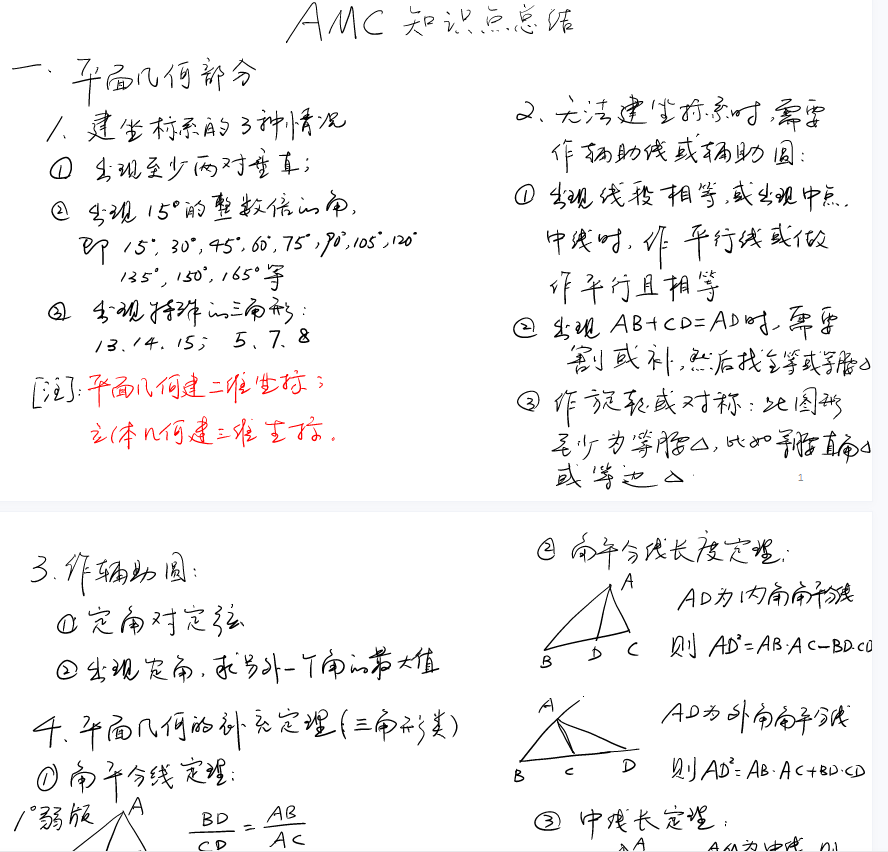 AMC 知识点总结
一. 平面几何部分
1. 建坐标系的3种情况
① 出现至少两对垂直;
② 出现15°的整数倍的角,
即 15°, 30°, 45°, 60°, 75°, 90°, 105°, 120°
135°, 150°, 165°等
③ 出现特殊的三角形:
13. 14. 15; 5. 7. 8
[注]: 平面几何建二维坐标;
立体几何建三维坐标.
2. 无法建坐标系时, 需要
作辅助线或辅助圆:
① 出现线段相等, 或出现中点.
中线时, 作平行线或做
作平行且相等
② 出现 AB+CD=AD时, 需要
割或补, 然后找全等或等腰△
③ 作旋转或对称: 此图形
至少为等腰△, 比如等腰直角△
或等边△
1
3. 作辅助圆:
① 定角对定弦
② 出现定角, 求另外一个角的最大值
4. 平面几何的补充定理(三角形类)
① 角平分线定理:
1°弱版
A
BD/CD = AB/AC
② 角平分线长度定理:
A
B D C
AD为内角角平分线
则 AD²=AB·AC−BD·CD
A
B C D
AD为外角角平分线
则 AD²=AB·AC+BD·CD
③ 中线长定理:
A